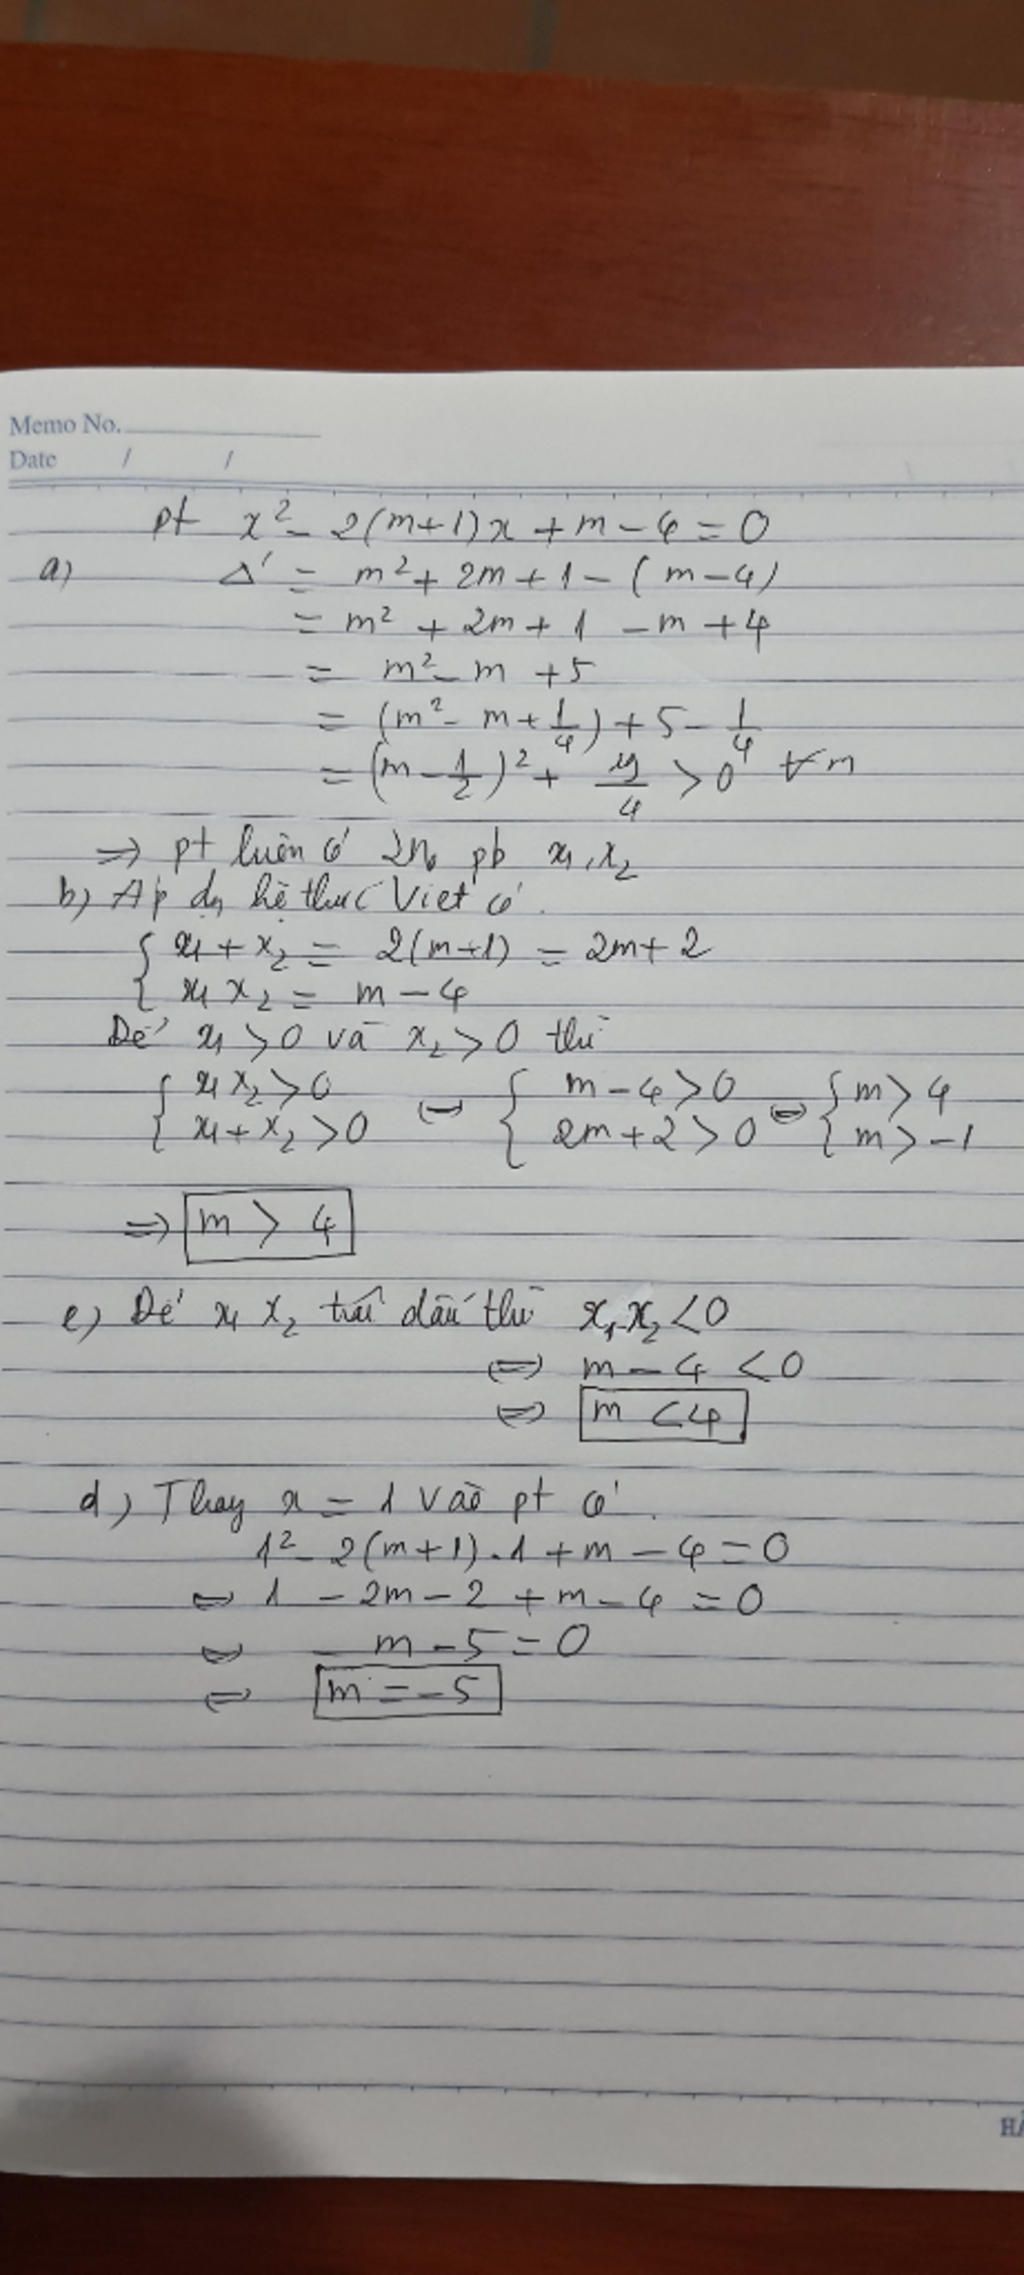 Memo No.
Date / /
pt x² - 2(m+1)x + m - 4 = 0
a) Δ' = m² + 2m + 1 - (m - 4)
= m² + 2m + 1 - m + 4
= m² - m + 5
= (m² - m + 1/4) + 5 - 1/4
= (m - 1/2)² + 19/4 > 0 ∀m
=> pt luôn có 2n₀ pb x₁, x₂
b) Áp dg hệ thức Viet có.
{ x₁ + x₂ = 2(m+1) = 2m + 2
{ x₁ x₂ = m - 4
Để x₁ > 0 và x₂ > 0 thì
{ x₁ x₂ > 0 <=> { m - 4 > 0 <=> { m > 4
{ x₁ + x₂ > 0 { 2m + 2 > 0 { m > -1
=> m > 4
c) Để x₁ x₂ trái dấu thì x₁.x₂ < 0
<=> m - 4 < 0
<=> m < 4
d) Thay x = 1 vào pt có.
1² - 2(m+1).1 + m - 4 = 0
<=> 1 - 2m - 2 + m - 4 = 0
<=> - m - 5 = 0
<=> m = -5